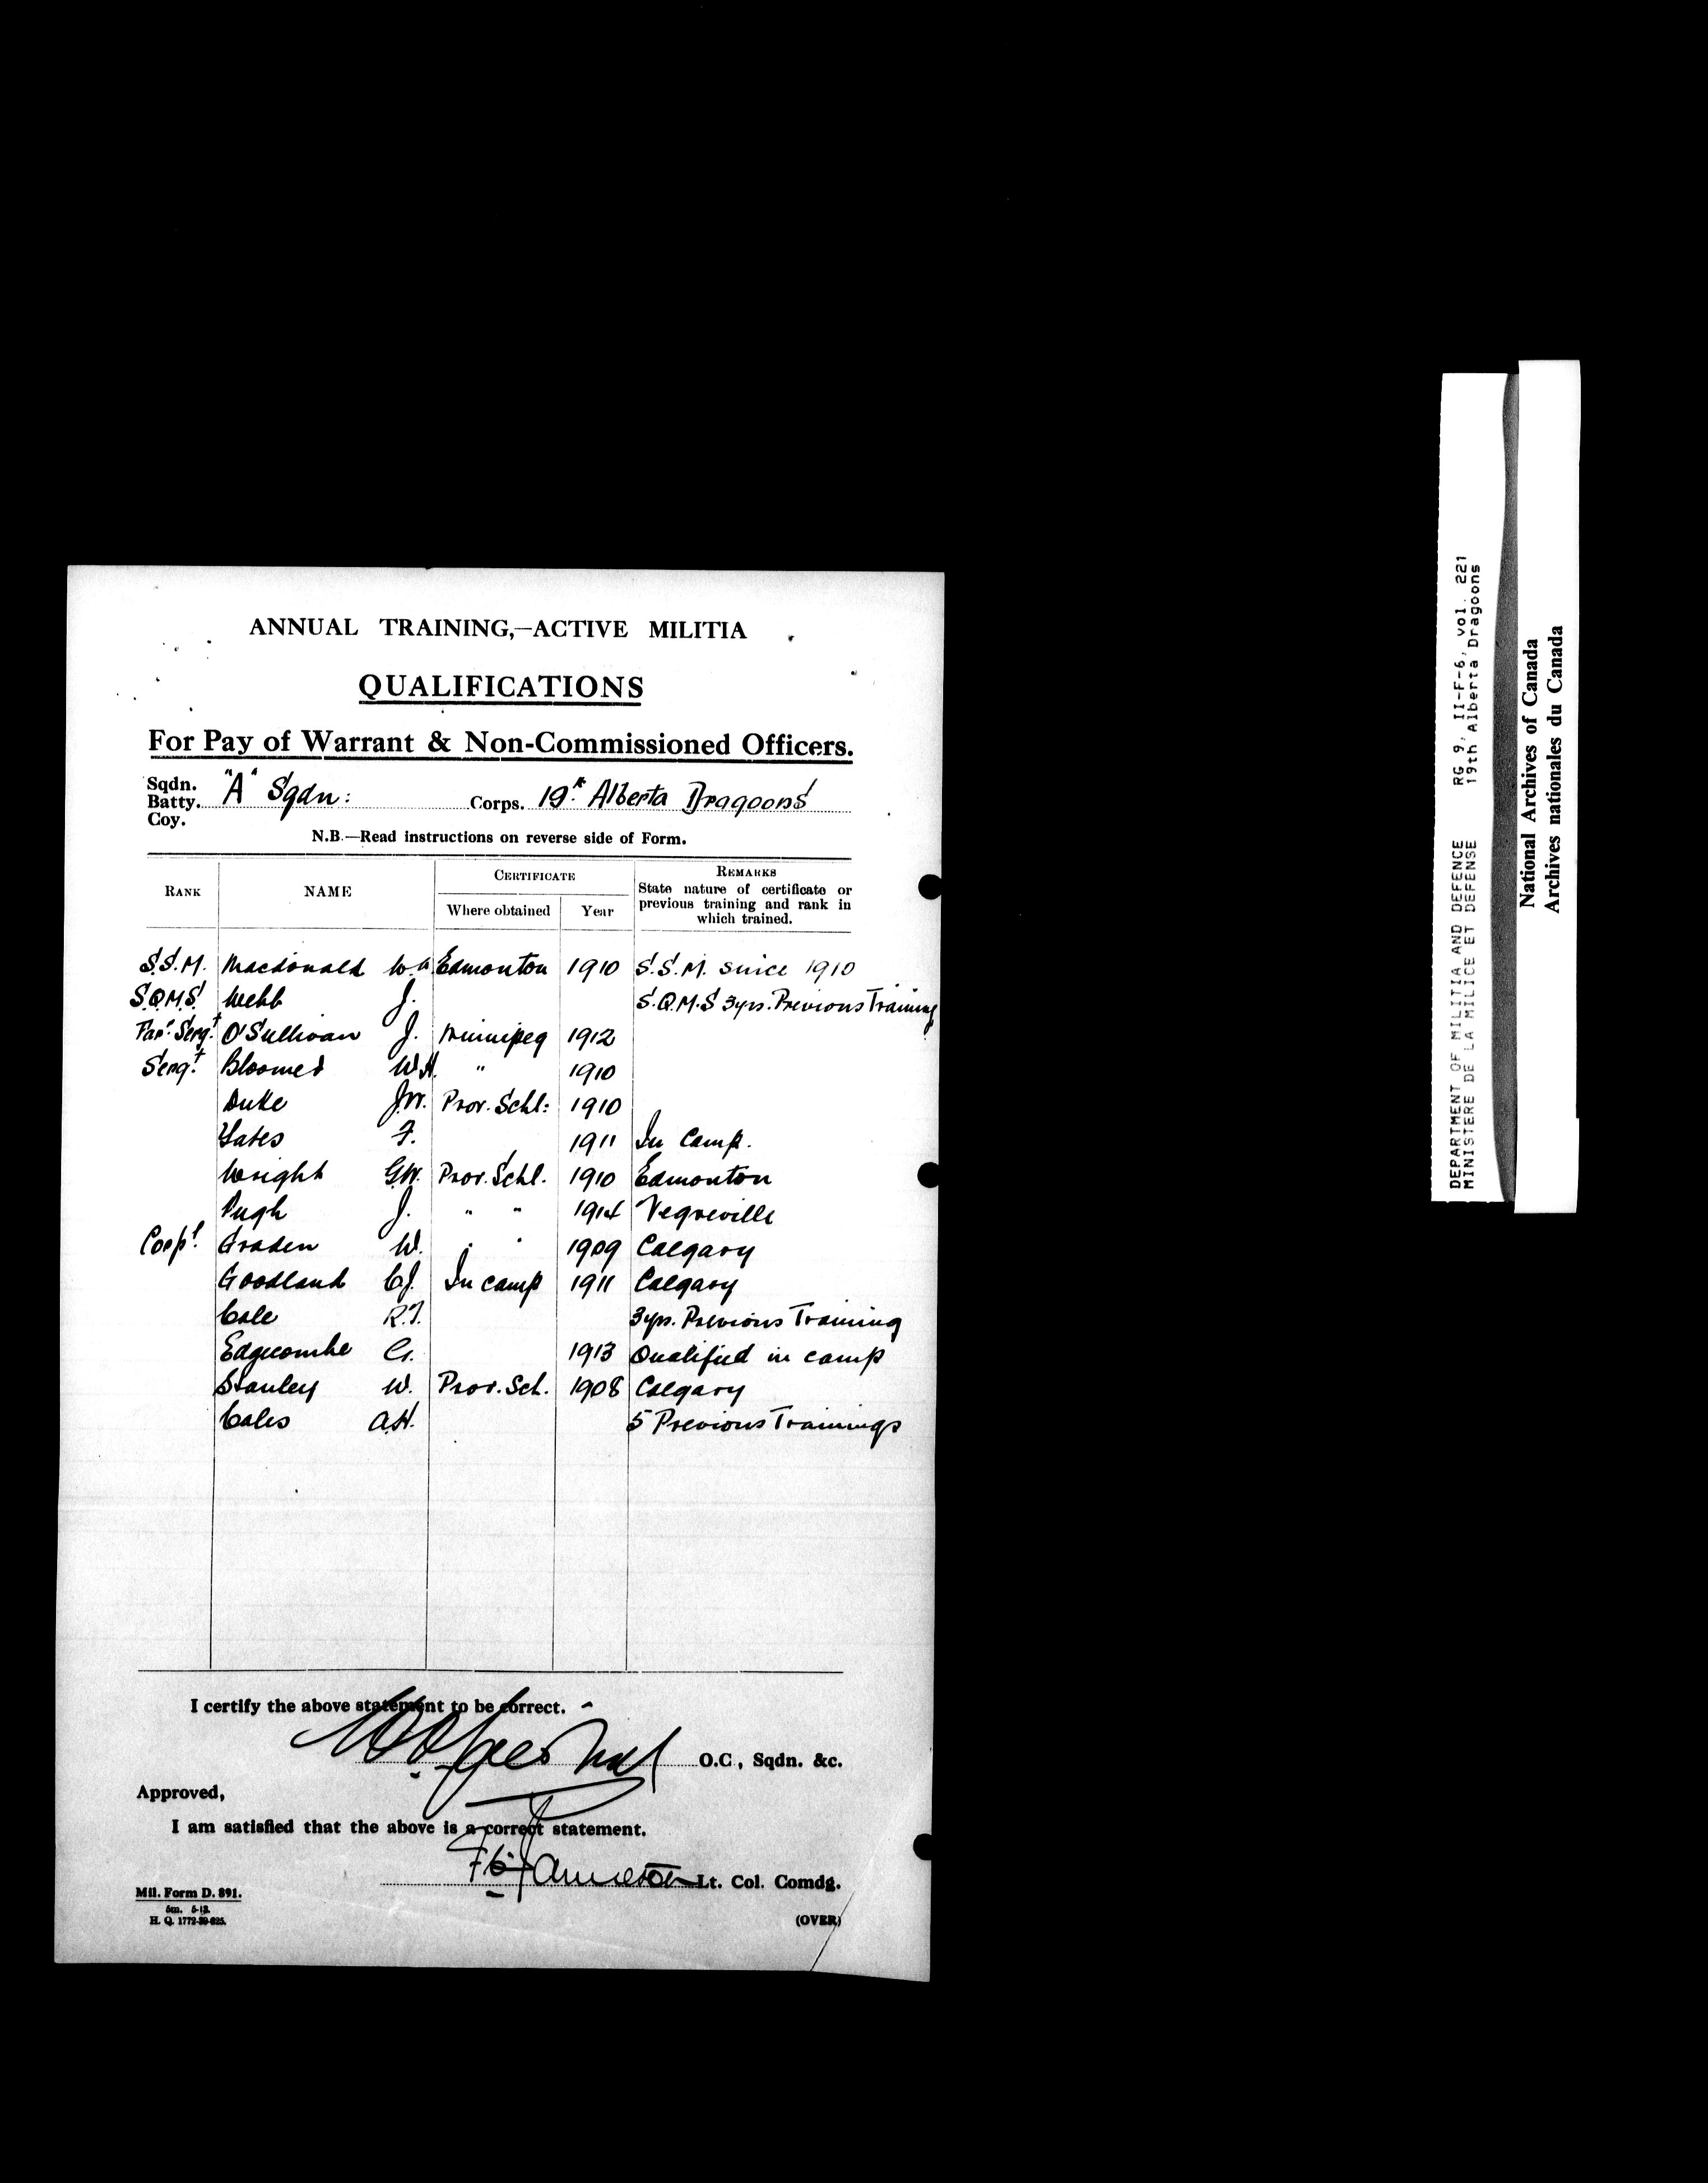 ANNUAL TRAINING,—ACTIVE MILITIA
QUALIFICATIONS
For Pay of Warrant & Non-Commissioned Officers.
Sqdn.
Batty. "A" Sqdn: Corps. 19th Alberta Dragoons
Coy.
N.B.—Read instructions on reverse side of Form.
RANK NAME CERTIFICATE Where obtained Year REMARKS State nature of certificate or previous training and rank in which trained.
S.S.M. Macdonald W.A. Edmonton 1910 S.S.M. since 1910
S.Q.M.S. Webb J. S.Q.M.S 3yrs. Previous Training
Farr. Sergt. O'Sullivan J. Winnipeg 1912
Sergt. Bloomer W.H. " 1910
Duke J.W. Prov. Schl: 1910
Yates F. 1911 In Camp.
Wright G.W. Prov. Schl. 1910 Edmonton
Pugh J. " " 1914 Vegreville
Corpl. Graden W. " " 1909 Calgary
Goodland C.J. In camp 1911 Calgary
Cole R.T. 3yrs. Previous Training
Edgecombe G. 1913 Qualified in camp
Stanley W. Prov. Sch. 1908 Calgary
Coles A.H. 5 Previous Trainings
I certify the above statement to be correct.
O.C., Sqdn. &c.
Approved,
I am satisfied that the above is a correct statement.
F.C. Jamieson Lt. Col. Comdg.
Mil. Form D. 891.
5m. 5-13.
H. Q. 1772-39-825.
(OVER)
DEPARTMENT OF MILITIA AND DEFENCE RG 9, II-F-6, vol. 221
MINISTERE DE LA MILICE ET DEFENSE 19th Alberta Dragoons
National Archives of Canada
Archives nationales du Canada